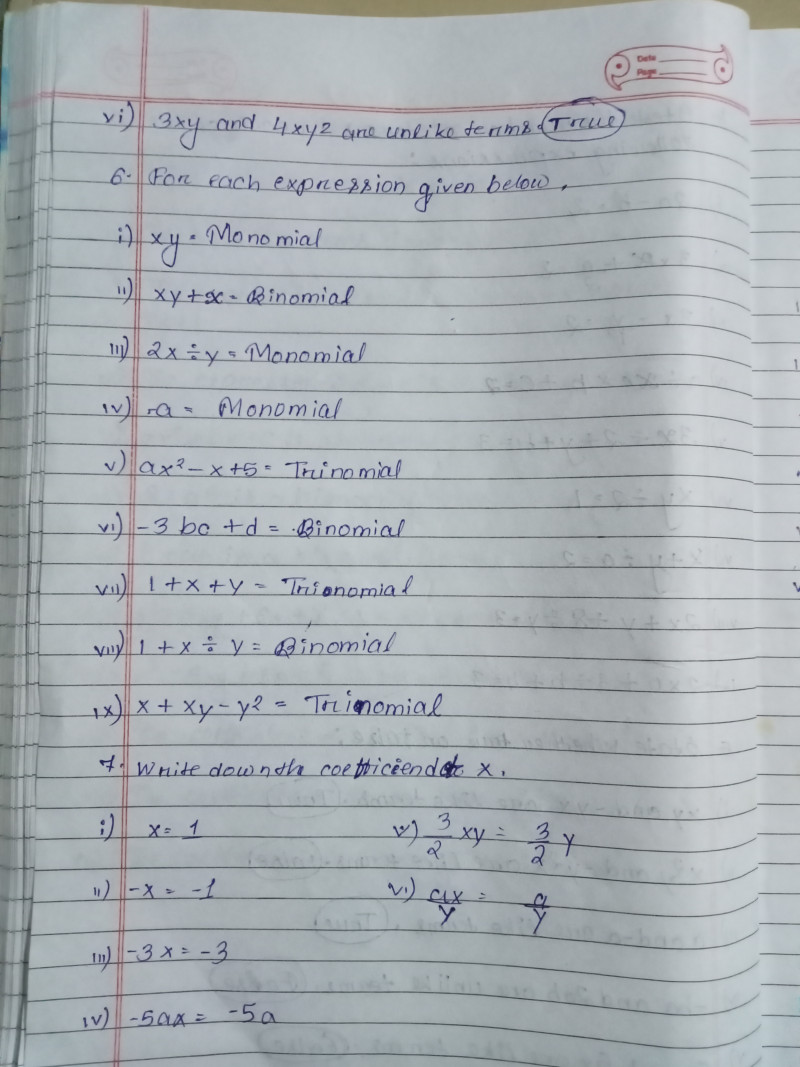 Date
Page
vi) 3xy and 4xy2 are unlike terms. True
6. For each expression given below.
i) xy = Monomial
ii) xy+x = Binomial
iii) 2x÷y = Monomial
iv) -a = Monomial
v) ax² - x +5 = Trinomial
vi) -3 bc +d = Binomial
vii) 1 + x + y = Trionomial
viii) 1 + x ÷ y = Binomial
ix) x + xy - y2 = Trinomial
7. Write down the coefficient x.
i) x = 1
v) 3/2 xy = 3/2 y
ii) -x = -1
vi) ax/y = a/y
iii) -3x = -3
iv) -5ax = -5a